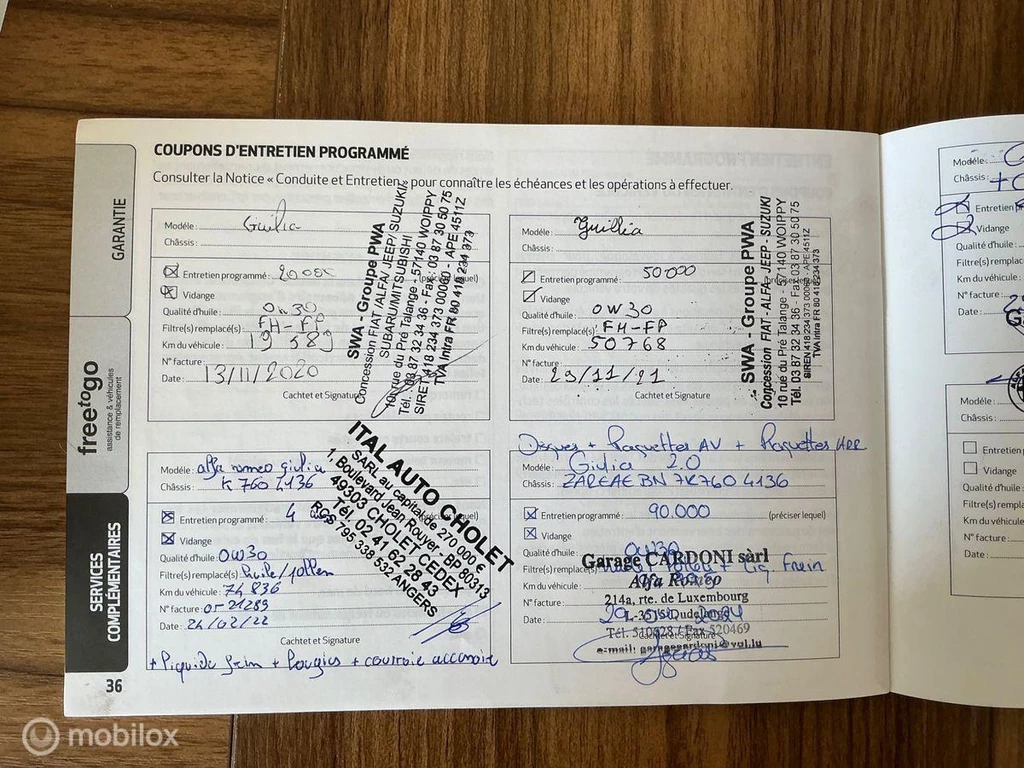 COUPONS D'ENTRETIEN PROGRAMMÉ
Consulter la Notice « Conduite et Entretien » pour connaître les échéances et les opérations à effectuer.
GARANTIE
freetogo
assistance & véhicules
de remplacement
SERVICES
COMPLÉMENTAIRES
36
Modèle : Giulia
Châssis :
Entretien programmé : 20000 (préciser lequel)
Vidange
Qualité d'huile : 0W30
Filtre(s) remplacé(s) FH-FP
Km du véhicule : 19589
N° facture :
Date : 13/11/2020
Cachtet et Signature
SWA - Groupe PWA
Concession FIAT/ALFA/JEEP/SUZUKI
SUBARU/MITSUBISHI
10 rue du Pré Talange - 57140 WOIPPY
Tél. 03 87 32 34 36 - Fax: 03 87 30 50 75
SIRET 418 234 373 00060 - APE 4511Z
TVA Intra FR 80 418 234 373
Modèle : Guillia
Châssis :
Entretien programmé : 50000
Vidange
Qualité d'huile : 0W30
Filtre(s) remplacé(s) FH-FP
Km du véhicule : 50768
N° facture :
Date : 29/11/21
Cachtet et Signature
SWA - Groupe PWA
Concession FIAT - ALFA - JEEP - SUZUKI
10 rue du Pré Talange - 57140 WOIPPY
Tél. 03 87 32 34 36 - Fax: 03 87 30 50 75
SIREN 418 234 373 00060 - APE 4511Z
TVA Intra FR 80 418 234 373
Modèle : alfa romeo giulia
Châssis : K760 4136
Entretien programmé : 4 (préciser lequel)
Vidange
Qualité d'huile : 0W30
Filtre(s) remplacé(s) huile/pollen
Km du véhicule : 74836
N° facture : or 21289
Date : 24/02/22
Cachtet et Signature
+ liquide frein + bougies + courroie accessoire
ITAL AUTO CHOLET
SARL au capital de 270 000 €
1, Boulevard Jean Rouyer - BP 80313
49303 CHOLET CEDEX
Tél. 02 41 62 28 43
RCS 795 338 532 ANGERS
Disques + Plaquettes AV + Plaquettes ARR
Modèle : Giulia 2.0
Châssis : ZAREAEBN7K7604136
Entretien programmé : 90.000 (préciser lequel)
Vidange
Qualité d'huile : 0W30
Filtre(s) remplacé(s) + Liq Frein
Km du véhicule :
N° facture :
Date : 2024
Cachtet et Signature
Garage CARDONI sàrl
Alfa Romeo
214a, rte. de Luxembourg
L-3515 Dudelange
Tél. 510628 / Fax 520469
e-mail: garagecardoni@vol.lu
Modèle :
Châssis :
Entretien
Vidange
Qualité d'huile :
Filtre(s) remplacé
Km du véhicule :
N° facture :
Date :
Modèle :
Châssis :
Entretien p
Vidange
Qualité d'huile
Filtre(s) remplacé
Km du véhicule :
N° facture :
Date :
mobilox